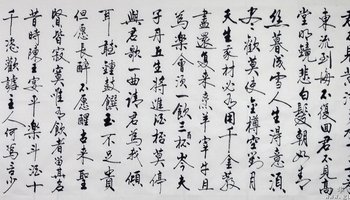 東流到海不復回君不見高
堂明鏡悲白髮朝如青
絲暮成雪人生得意須
盡歡莫使金樽空對月
天生我材必有用千金散
盡還復來烹羊宰牛且
為樂會須一飲三百杯岑夫
子丹丘生將進酒杯莫停
與君歌一曲請君為我傾
耳聽鐘鼓饌玉不足貴
但願長醉不願醒古來聖
賢皆寂寞唯有飲者留其名
昔時陳王宴平樂斗酒十
千恣歡謔主人何為言少